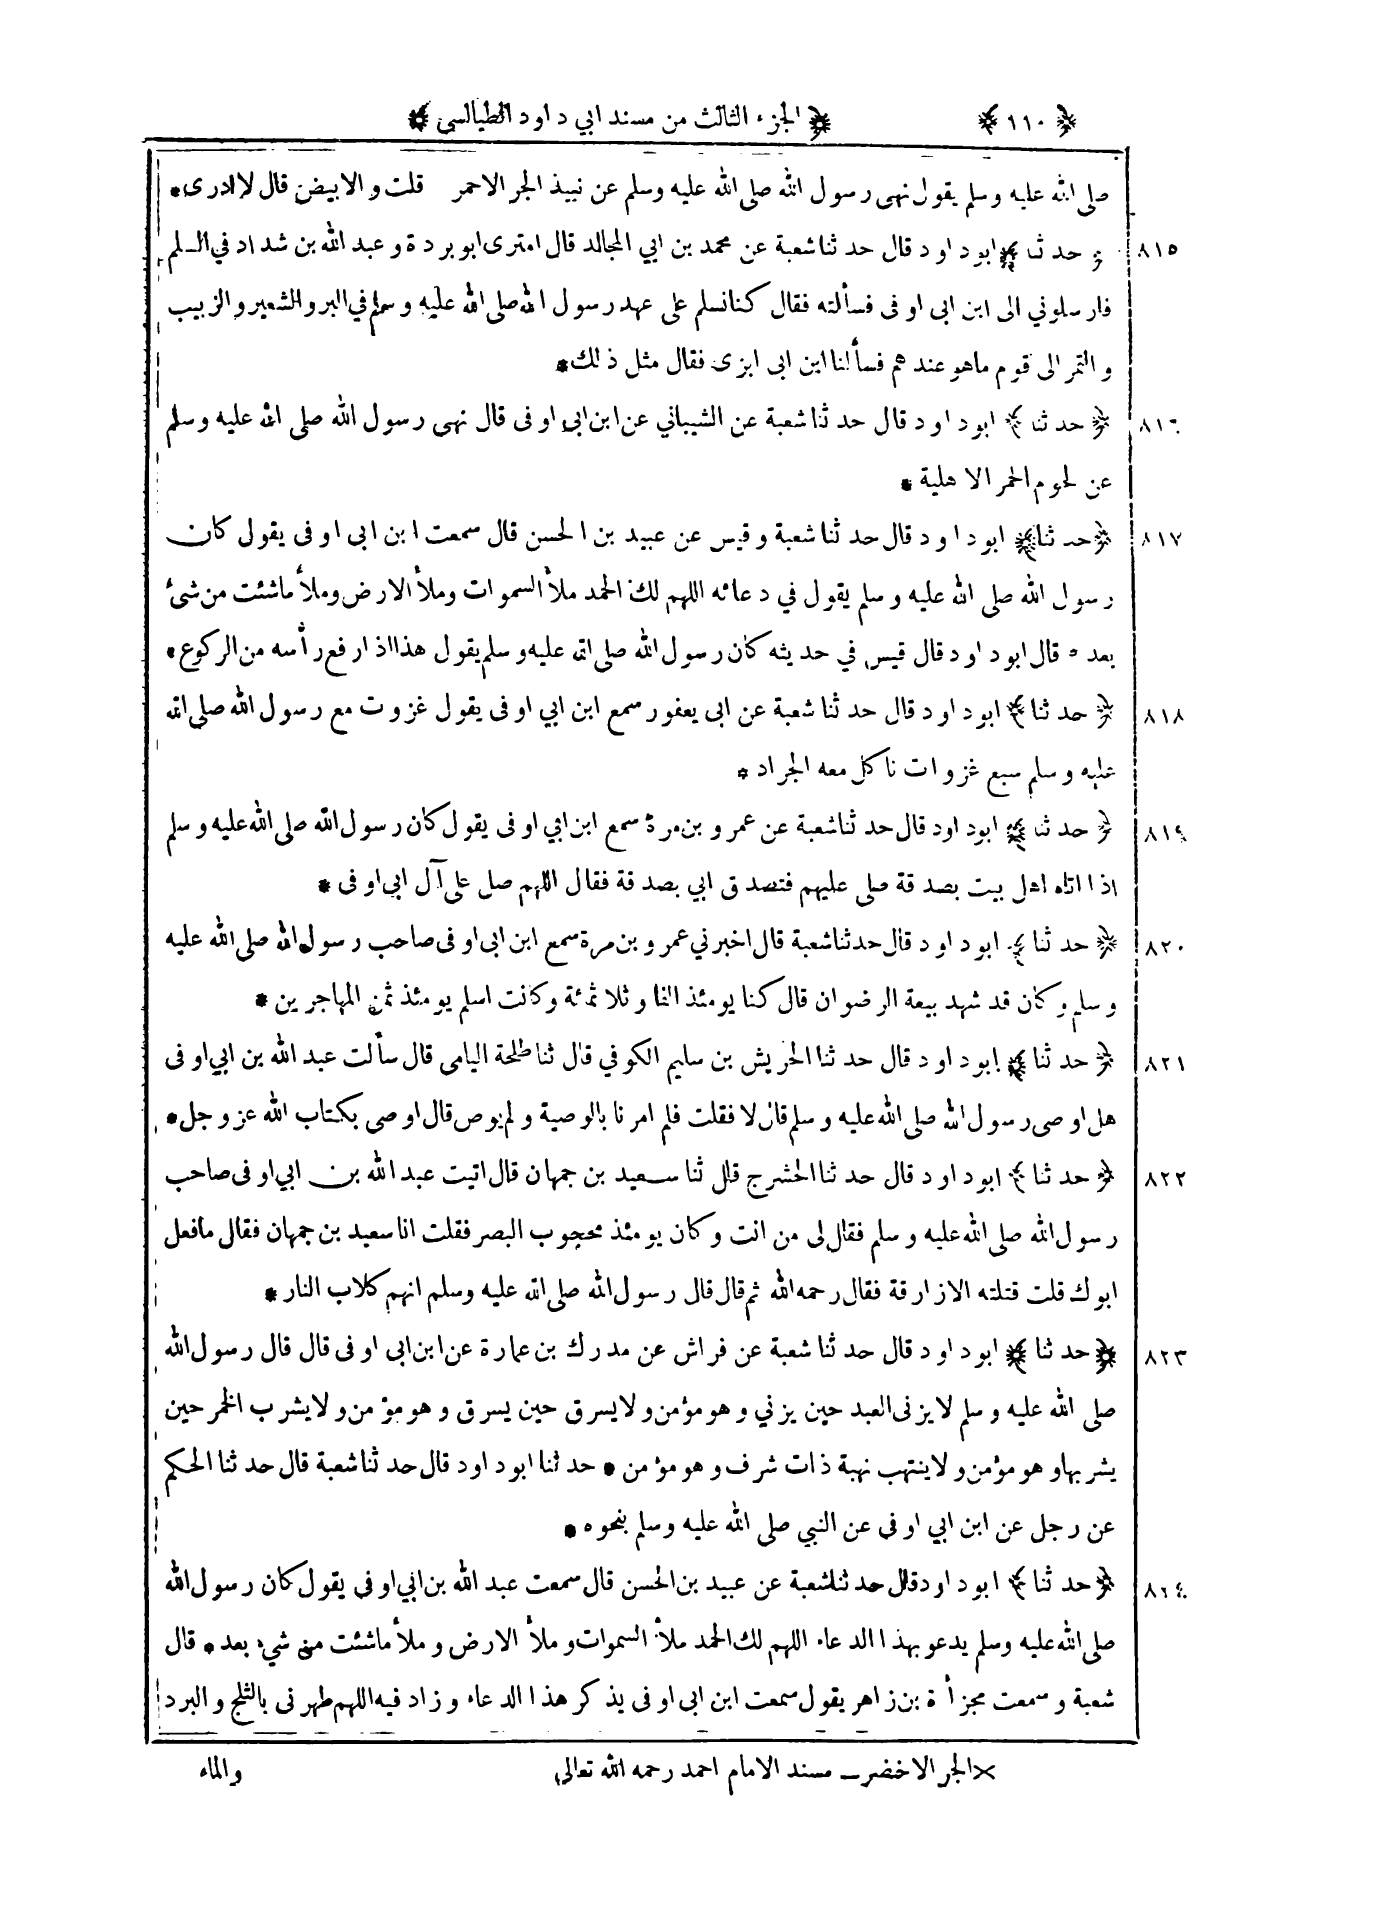 ﴿ ١١٠ ﴾ ﴿ الجزء الثالث من مسند ابي داود الطيالسي ﴾
صلى الله عليه وسلم يقول نهى رسول الله صلى الله عليه وسلم عن نبيذ الجر الاحمر قلت والابيض قال لا ادرى*
٨١٥ ﴿ حدثنا ﴾ ابوداود قال حدثنا شعبة عن محمد بن ابي المجالد قال امترى ابوبردة وعبد الله بن شداد في السلم
فارسلوني الى ابن ابى اوفى فسألته فقال كنا نسلم على عهد رسول الله صلى الله عليه وسلم في البر والشعير والزبيب
والتمر الى قوم ماهو عندهم فسألنا ابن ابى ابزى فقال مثل ذلك*
٨١٦ ﴿ حدثنا ﴾ ابوداود قال حدثنا شعبة عن الشيباني عن ابن ابي اوفى قال نهى رسول الله صلى الله عليه وسلم
عن لحوم الحمر الاهلية *
٨١٧ ﴿ حدثنا ﴾ ابوداود قال حدثنا شعبة وقيس عن عبيد بن الحسن قال سمعت ابن ابى اوفى يقول كان
رسول الله صلى الله عليه وسلم يقول في دعائه اللهم لك الحمد ملأ السموات وملأ الارض وملأ ماشئت من شئ
بعد * قال ابوداود قال قيس في حديثه كان رسول الله صلى الله عليه وسلم يقول هذا اذا رفع رأسه من الركوع*
٨١٨ ﴿ حدثنا ﴾ ابوداود قال حدثنا شعبة عن ابى يعفور سمع ابن ابي اوفى يقول غزوت مع رسول الله صلى الله
عليه وسلم سبع غزوات ناكل معه الجراد *
٨١٩ ﴿ حدثنا ﴾ ابوداود قال حدثنا شعبة عن عمرو بن مرة سمع ابن ابي اوفى يقول كان رسول الله صلى الله عليه وسلم
اذا اتاه اهل بيت بصدقة صلى عليهم فتصدق ابي بصدقة فقال اللهم صل على آل ابى اوفى *
٨٢٠ ﴿ حدثنا ﴾ ابوداود قال حدثنا شعبة قال اخبرني عمرو بن مرة سمع ابن ابى اوفى صاحب رسول الله صلى الله عليه
وسلم وكان قد شهد بيعة الرضوان قال كنا يومئذ الفا وثلاثمئة وكانت اسلم يومئذ ثمن المهاجرين *
٨٢١ ﴿ حدثنا ﴾ ابوداود قال حدثنا الحريش بن سليم الكوفي قال ثنا طلحة اليامى قال سألت عبد الله بن ابي اوفى
هل اوصى رسول الله صلى الله عليه وسلم قال لا فقلت فلم امرنا بالوصية ولم يوص قال اوصى بكتاب الله عزوجل*
٨٢٢ ﴿ حدثنا ﴾ ابوداود قال حدثنا الحشرج قال ثنا سعيد بن جمهان قال اتيت عبد الله بن ابي اوفى صاحب
رسول الله صلى الله عليه وسلم فقال لى من انت وكان يومئذ محجوب البصر فقلت انا سعيد بن جمهان فقال مافعل
ابوك قلت قتلته الازارقة فقال رحمه الله ثم قال قال رسول الله صلى الله عليه وسلم انهم كلاب النار *
٨٢٣ ﴿ حدثنا ﴾ ابوداود قال حدثنا شعبة عن فراش عن مدرك بن عمارة عن ابن ابى اوفى قال قال رسول الله
صلى الله عليه وسلم لا يزنى العبد حين يزني وهو مؤمن ولا يسرق حين يسرق وهو مؤمن ولا يشرب الخمر حين
يشربها وهو مؤمن ولا ينتهب نهبة ذات شرف وهو مؤمن * حدثنا ابوداود قال حدثنا شعبة قال حدثنا الحكم
عن رجل عن ابن ابي اوفى عن النبي صلى الله عليه وسلم بنحوه *
٨٢٤ ﴿ حدثنا ﴾ ابوداود قال حدثنا شعبة عن عبيد بن الحسن قال سمعت عبد الله بن ابي اوفى يقول كان رسول الله
صلى الله عليه وسلم يدعو بهذا الدعاء اللهم لك الحمد ملأ السموات وملأ الارض وملأ ماشئت من شيء بعد* قال
شعبة وسمعت مجزأة بن زاهر يقول سمعت ابن ابى اوفى يذكر هذا الدعاء وزاد فيه اللهم طهرنى بالثلج والبرد
×الجر الاخضر – مسند الامام احمد رحمه الله تعالى والماء